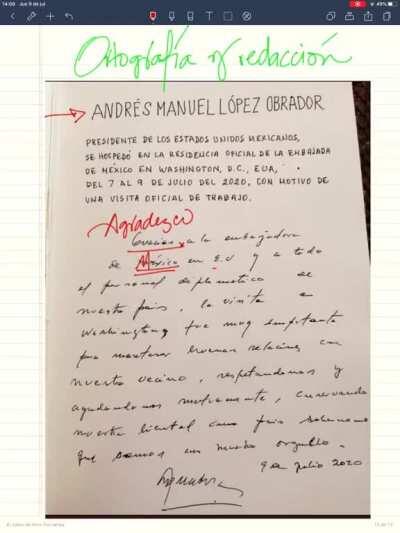 14:00 Jue 9 de jul
49%
Ortografía y redacción
ANDRÉS MANUEL LÓPEZ OBRADOR
PRESIDENTE DE LOS ESTADOS UNIDOS MEXICANOS,
SE HOSPEDÓ EN LA RESIDENCIA OFICIAL DE LA EMBAJADA
DE MÉXICO EN WASHINGTON, D.C., EUA,
DEL 7 AL 9 DE JULIO DEL 2020, CON MOTIVO DE
UNA VISITA OFICIAL DE TRABAJO.
Agradezco
Gracias a la embajadora
de México en E.U y a todo
el personal diplomático de
nuestro país, la visita a
Washington fue muy importante
para mantener buenas relaciones con
nuestro vecino, respetandonos y
ayudandonos mutuamente,
nuestra libertad como país soberano
que somos con mucho orgullo.
9 de julio 2020